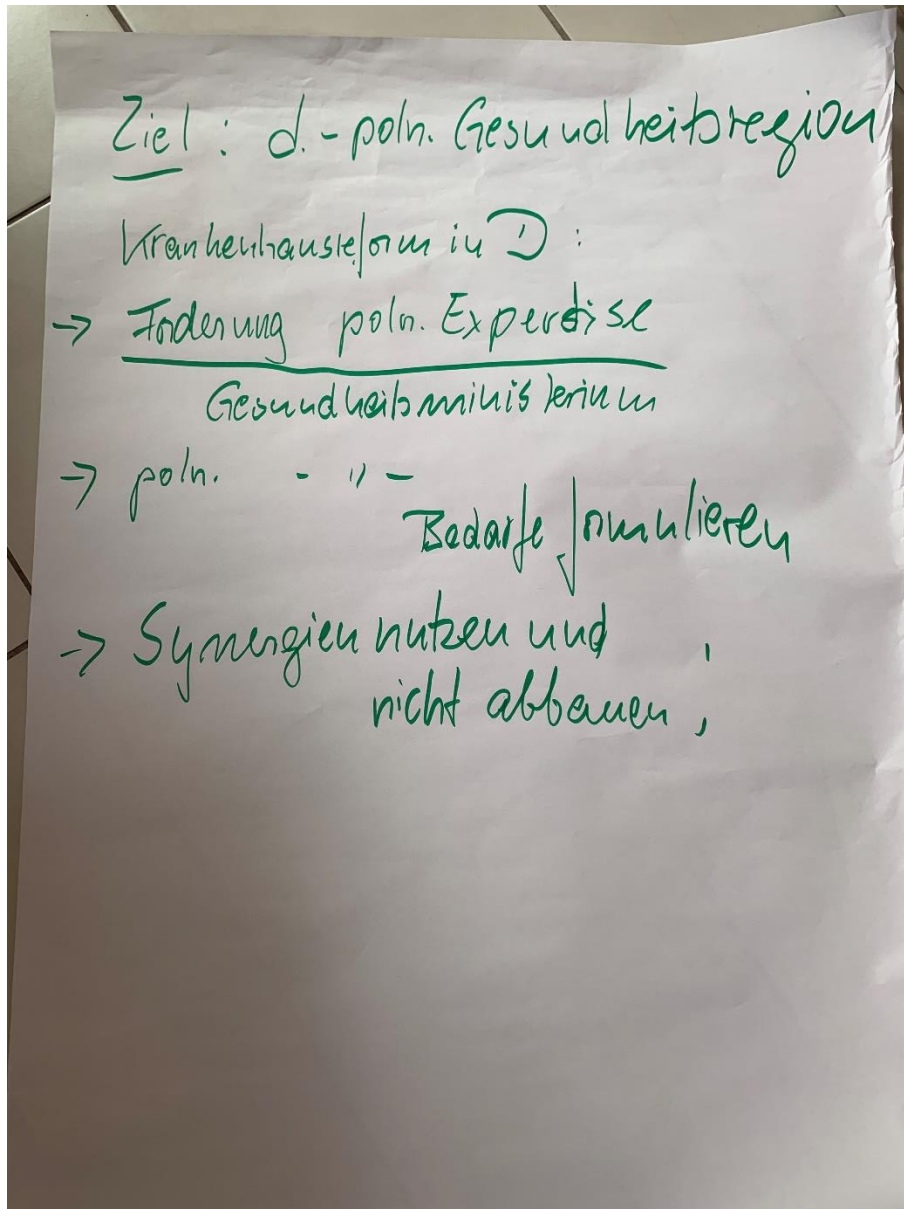 Ziel: d.-poln. Gesundheitsregion
Krankenhausreform in D:
→ Forderung poln. Expertise
Gesundheitsministerium
→ poln. - " -
Bedarfe formulieren
→ Synergien nutzen und
nicht abbauen,